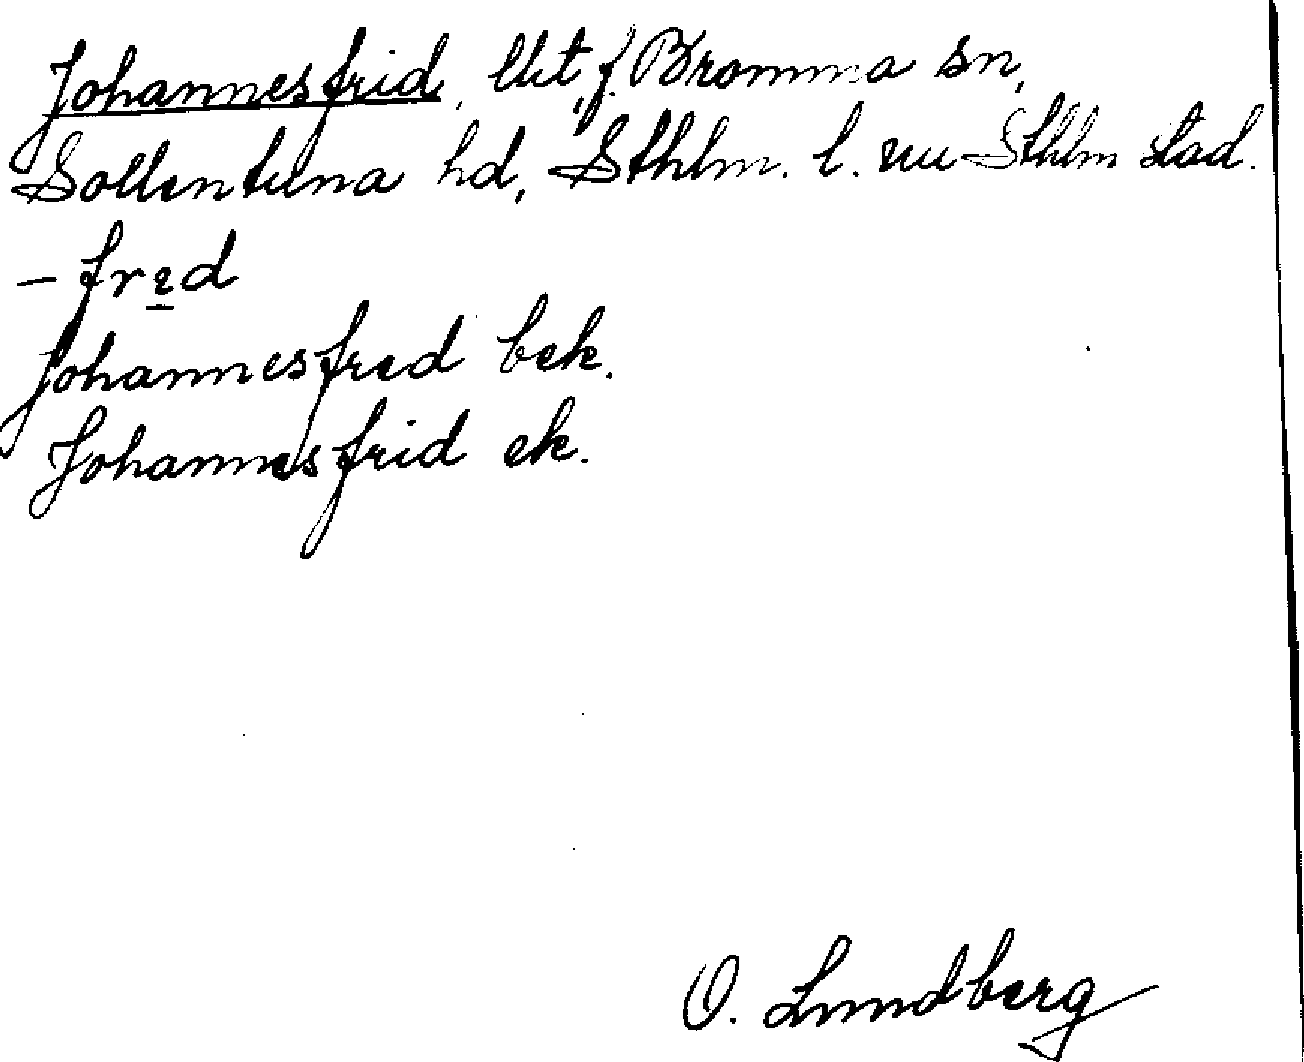 Johannesfrid, lht, f. Bromma sn,
Sollentuna hd, Sthlm. l. nu Sthlm stad.
- fred
Johannesfred bek.
Johannesfrid ek.
O. Lundberg